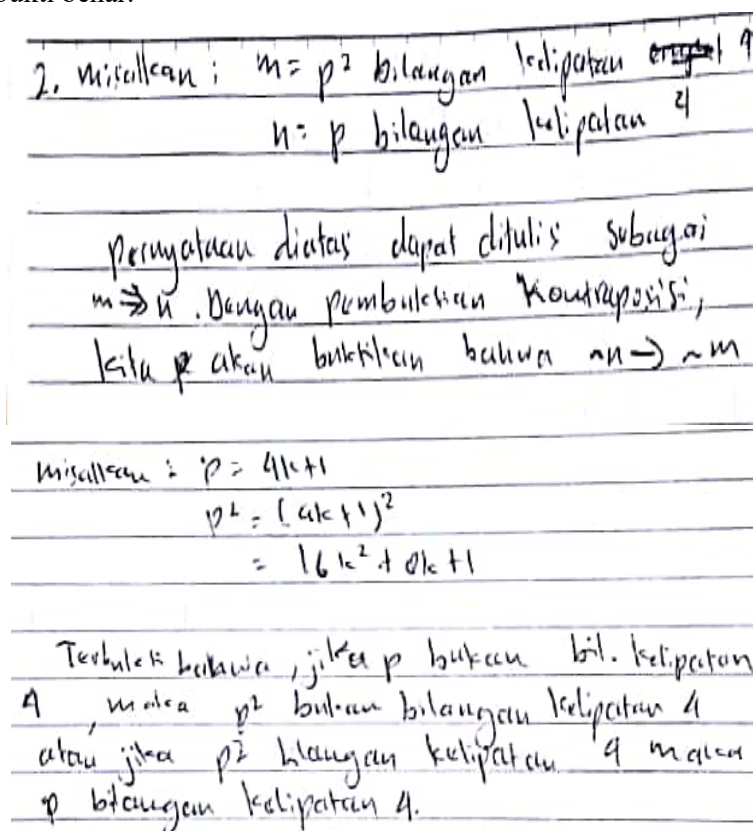 bukti benar.
2. misalkan : m = p² bilangan kelipatan 4
n = p bilangan kelipatan 4
pernyataan diatas dapat ditulis sebagai
m ⇒ n . Dengan pembuktian kontraposisi,
kita akan buktikan bahwa ~n → ~m
misalkan : p = 4k+1
p² = (4k+1)²
= 16k² + 8k + 1
Terbukti bahwa, jika p bukan bil. kelipatan
4, maka p² bukan bilangan kelipatan 4
atau jika p² bilangan kelipatan 4 maka
p bilangan kelipatan 4.